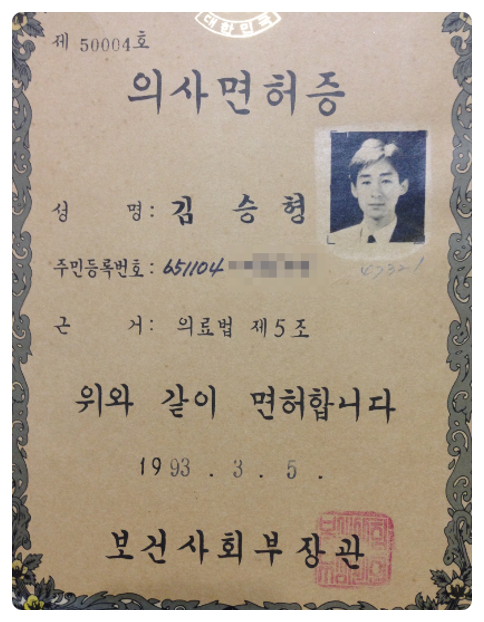 대한민국
제 50004호
의사면허증
성 명: 김 승 형
주민등록번호: 651104
47321
근 거: 의료법 제5조
위와 같이 면허합니다
1993 . 3 . 5 .
보건사회부장관